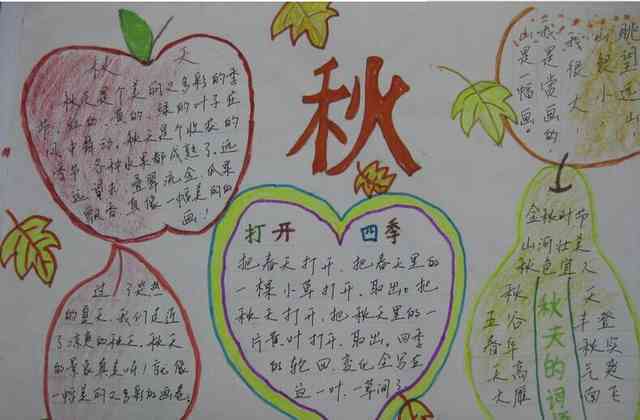 秋
秋天
秋天是个美丽又多彩的季
节,红的、黄的、绿的叶子在
风中舞动,秋天是个收获的
季节,各种水果都成熟了,远
远望去,叠翠流金,瓜果
飘香,真像一幅美丽的
画!
眺望远山
山貌小
我很大!
我是赏画的,
山是一幅画。
打开 四季
把春天打开,把春天里的
一棵小草打开,取出。把
秋天打开,把秋天里的一
片黄叶打开,取出,四季
的轮回,变化全写在
这一叶一草间了
过了炎热
的夏天,我们走近
了凉爽的秋天,秋天
的景象真美呀!就像
一幅美丽又多彩的画卷。
金秋时节
山河壮美
秋色宜人
秋天的词
秋 天
五谷丰登
春华秋实
天高
大雁 飞